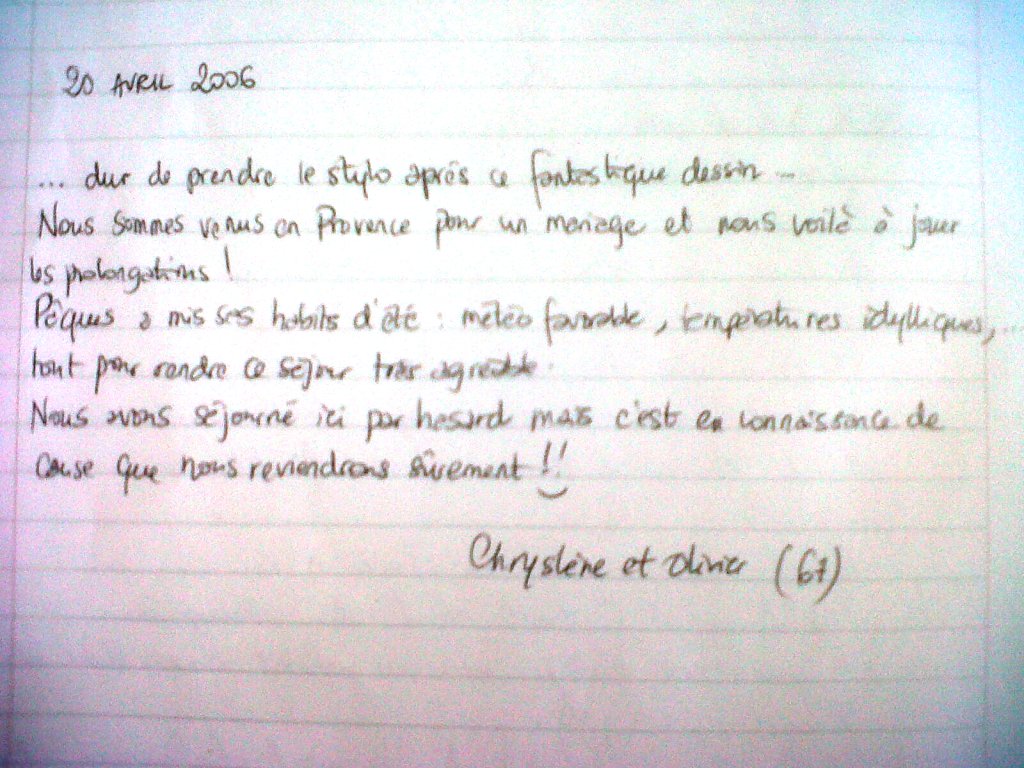 20 AVRIL 2006
... dur de prendre le stylo après ce fantastique dessin ...
Nous sommes venus en Provence pour un mariage et nous voilà à jouer
les prolongations !
Pâques a mis ses habits d'été : météo favorable, températures idylliques, ...
tout pour rendre ce séjour très agréable.
Nous avons séjourné ici par hasard mais c'est en connaissance de
cause que nous reviendrons sûrement !!
Chryslène et Olivier (67)